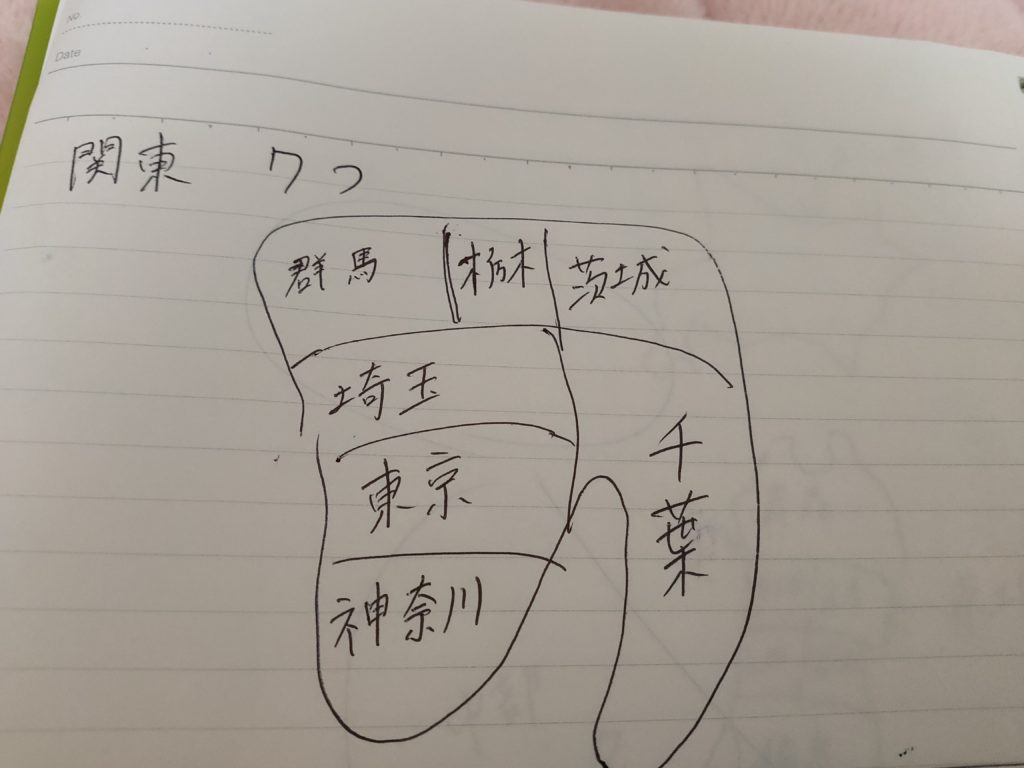 No.
Date
関東 7つ
群馬 栃木 茨城
埼玉
千葉
東京
神奈川